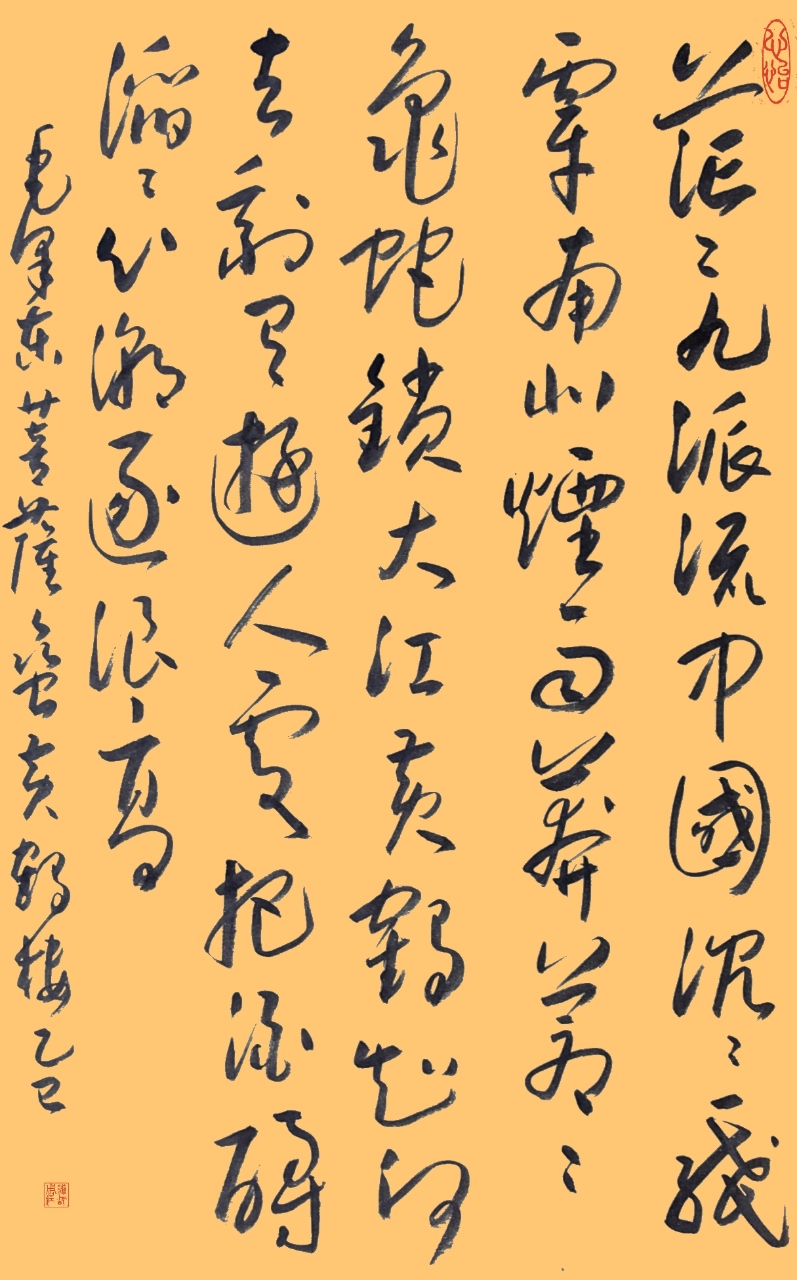 茫〻九派流中國沉〻一綫
穿南北煙雨莽蒼〻
龜蛇鎖大江黄鶴知何
去剩有遊人處把酒酹
滔〻心潮逐浪高
毛澤東菩薩蠻黄鶴樓乙巳